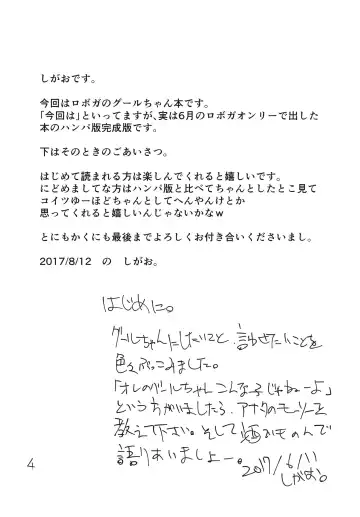 しがおです。
今回はロボガのグールちゃん本です。
「今回は」といってますが、実は6月のロボガオンリーで出した
本のハンパ版完成版です。
下はそのときのごあいさつ。
はじめて読まれる方は楽しんでくれると嬉しいです。
にどめましてな方はハンパ版と比べてちゃんとしたとこ見て
コイツゆーほどちゃんとしてへんやんけとか
思ってくれると嬉しいんじゃないかなｗ
とにもかくにも最後までよろしくお付き合いくださいまし。
2017/8/12　の　しがお。
はじめに。
グールちゃんにしたいこと、言わせたいことを
色々ぶっこみました。
「オレのグールちゃんこんな子じゃねーよ」
というちがいましたら、アナタのモーソーを
教えて下さい。そして のもので
語りあいましょー。2017/6/11
しがお。
4